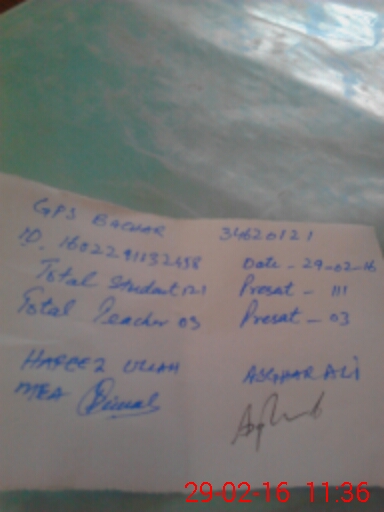 GPS BACHAR 34620121
ID. 1602291132458 Date - 29-02-16
Total Student 121 Presat - 111
Total Teacher 03 Presat - 03
HAFEEZ ULLAH ASGHAR ALI
MEA
29-02-16 11:36